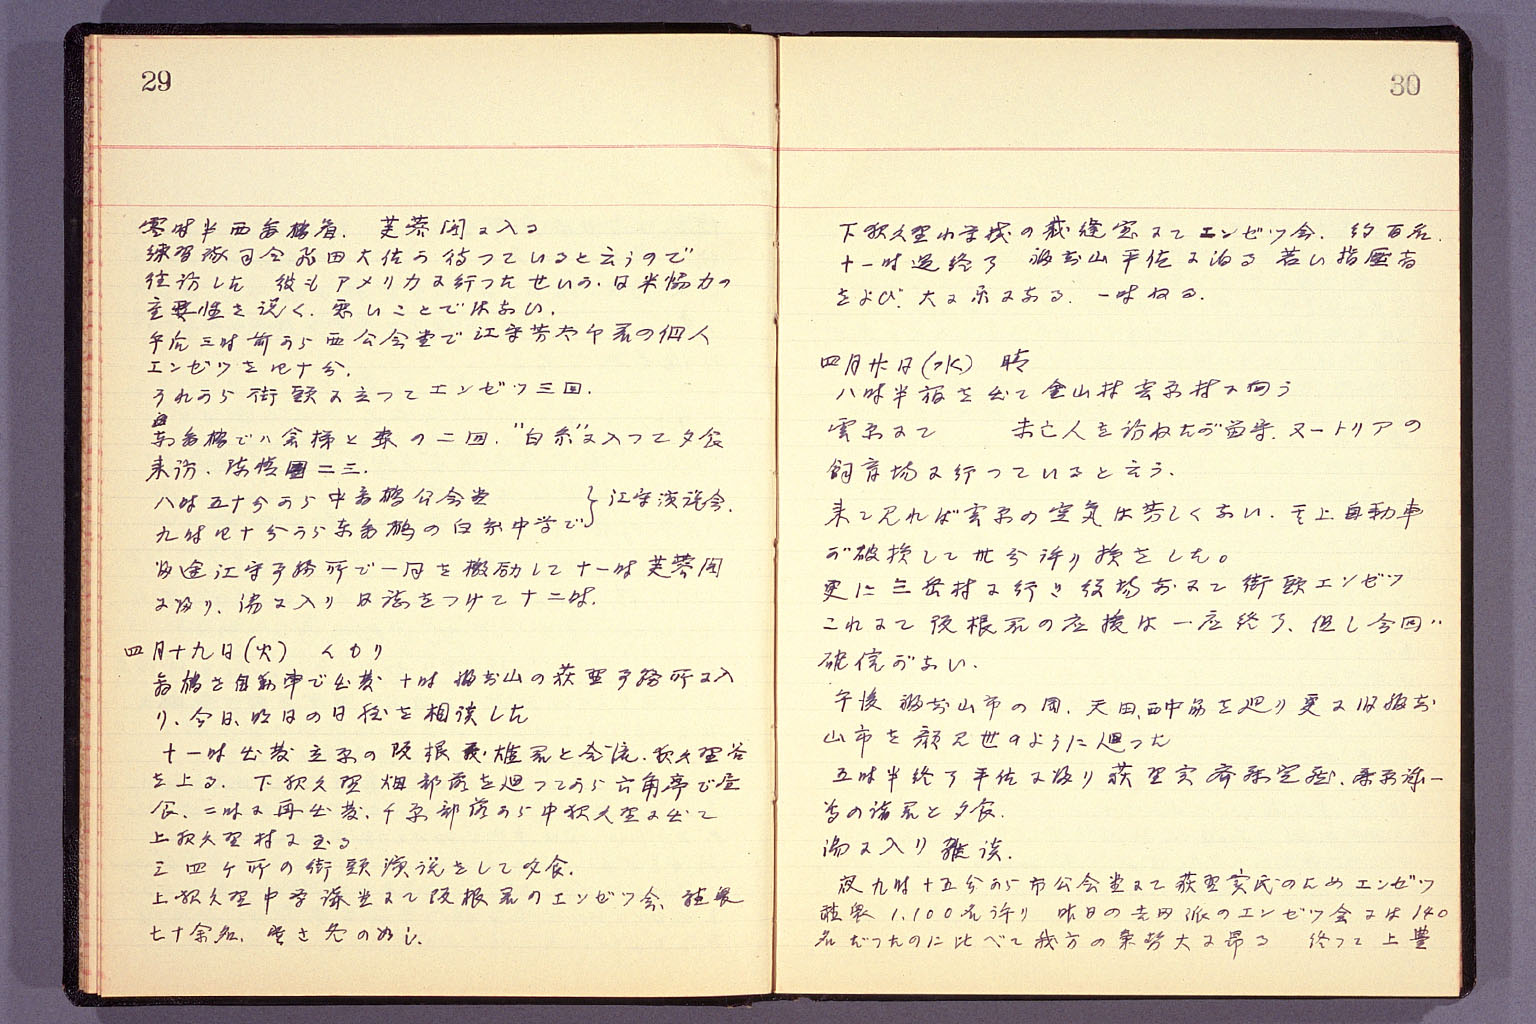 29
零時半西舞鶴着、芙蓉閣に入る
練習隊司令飛田大佐が待っていると云うので
往訪した 彼もアメリカに行ったせいか、日米協力の
重要性を説く、悪いことではない、
午后三時前から西公会堂で江守芳太郎君の個人
エンゼツを四十分、
それから街頭に立ってエンゼツ三回、
東舞鶴で八会様と の二回、"白糸"に入って夕食
来訪、 二三、
八時五十分から中舞鶴公会堂
九時四十分から東舞鶴の白糸中学で
}江守演説会、
帰途江守事務所で一同を激励して十一時芙蓉閣
に帰り、湯に入り日誌をつけて十二時、
四月十九日(火) くもり
舞鶴を自動車で出発 十時福知山の荻野事務所に入
り、今日、明日の日程を相談した
十一時出発立原の阪根 雄君と合流、夜久野谷
を上る、下夜久野 畑部落を廻ってから六角亭で昼
食、二時に再出発、千原部落から中夜久野に出て
上夜久野村に至る
三四ヶ所の街頭演説をして夕食、
上夜久野中学講堂にて阪根君のエンゼツ会、聴衆
七十余名、 の如し、
30
下夜久野小学校の裁縫室にてエンゼツ会、約百名、
十一時過終了 福知山平佐に泊る 若い指圧者
をよび、大に楽になる、一時ねる、
四月廿日(水) 晴
八時半宿を出て金山村雲原村に向う
雲原にて 未亡人を訪ねたが留守、ヌートリアの
飼育場に行っていると云う、
来て見れば雲原の空気は芳しくない、至上自動車
が破損して廿分許り損をした。
更に三岳村に行き役場前にて街頭エンゼツ
これにて阪根君の応援は一応終了、但し今回は
確信がない、
午後 福知山市の周、天田、西中筋を廻り更に旧福知
山市を顔見世のように廻った
五時半終了平佐に帰り荻野実 、 一
等の諸君と夕食、
湯に入り雑談、
夜九時十五分から市公会堂にて荻野実氏のためエンゼツ
聴衆1,100名許り 昨日の吉田派のエンゼツ会には140
名だったのに比べて我方の気勢大に昂る 終って上豊